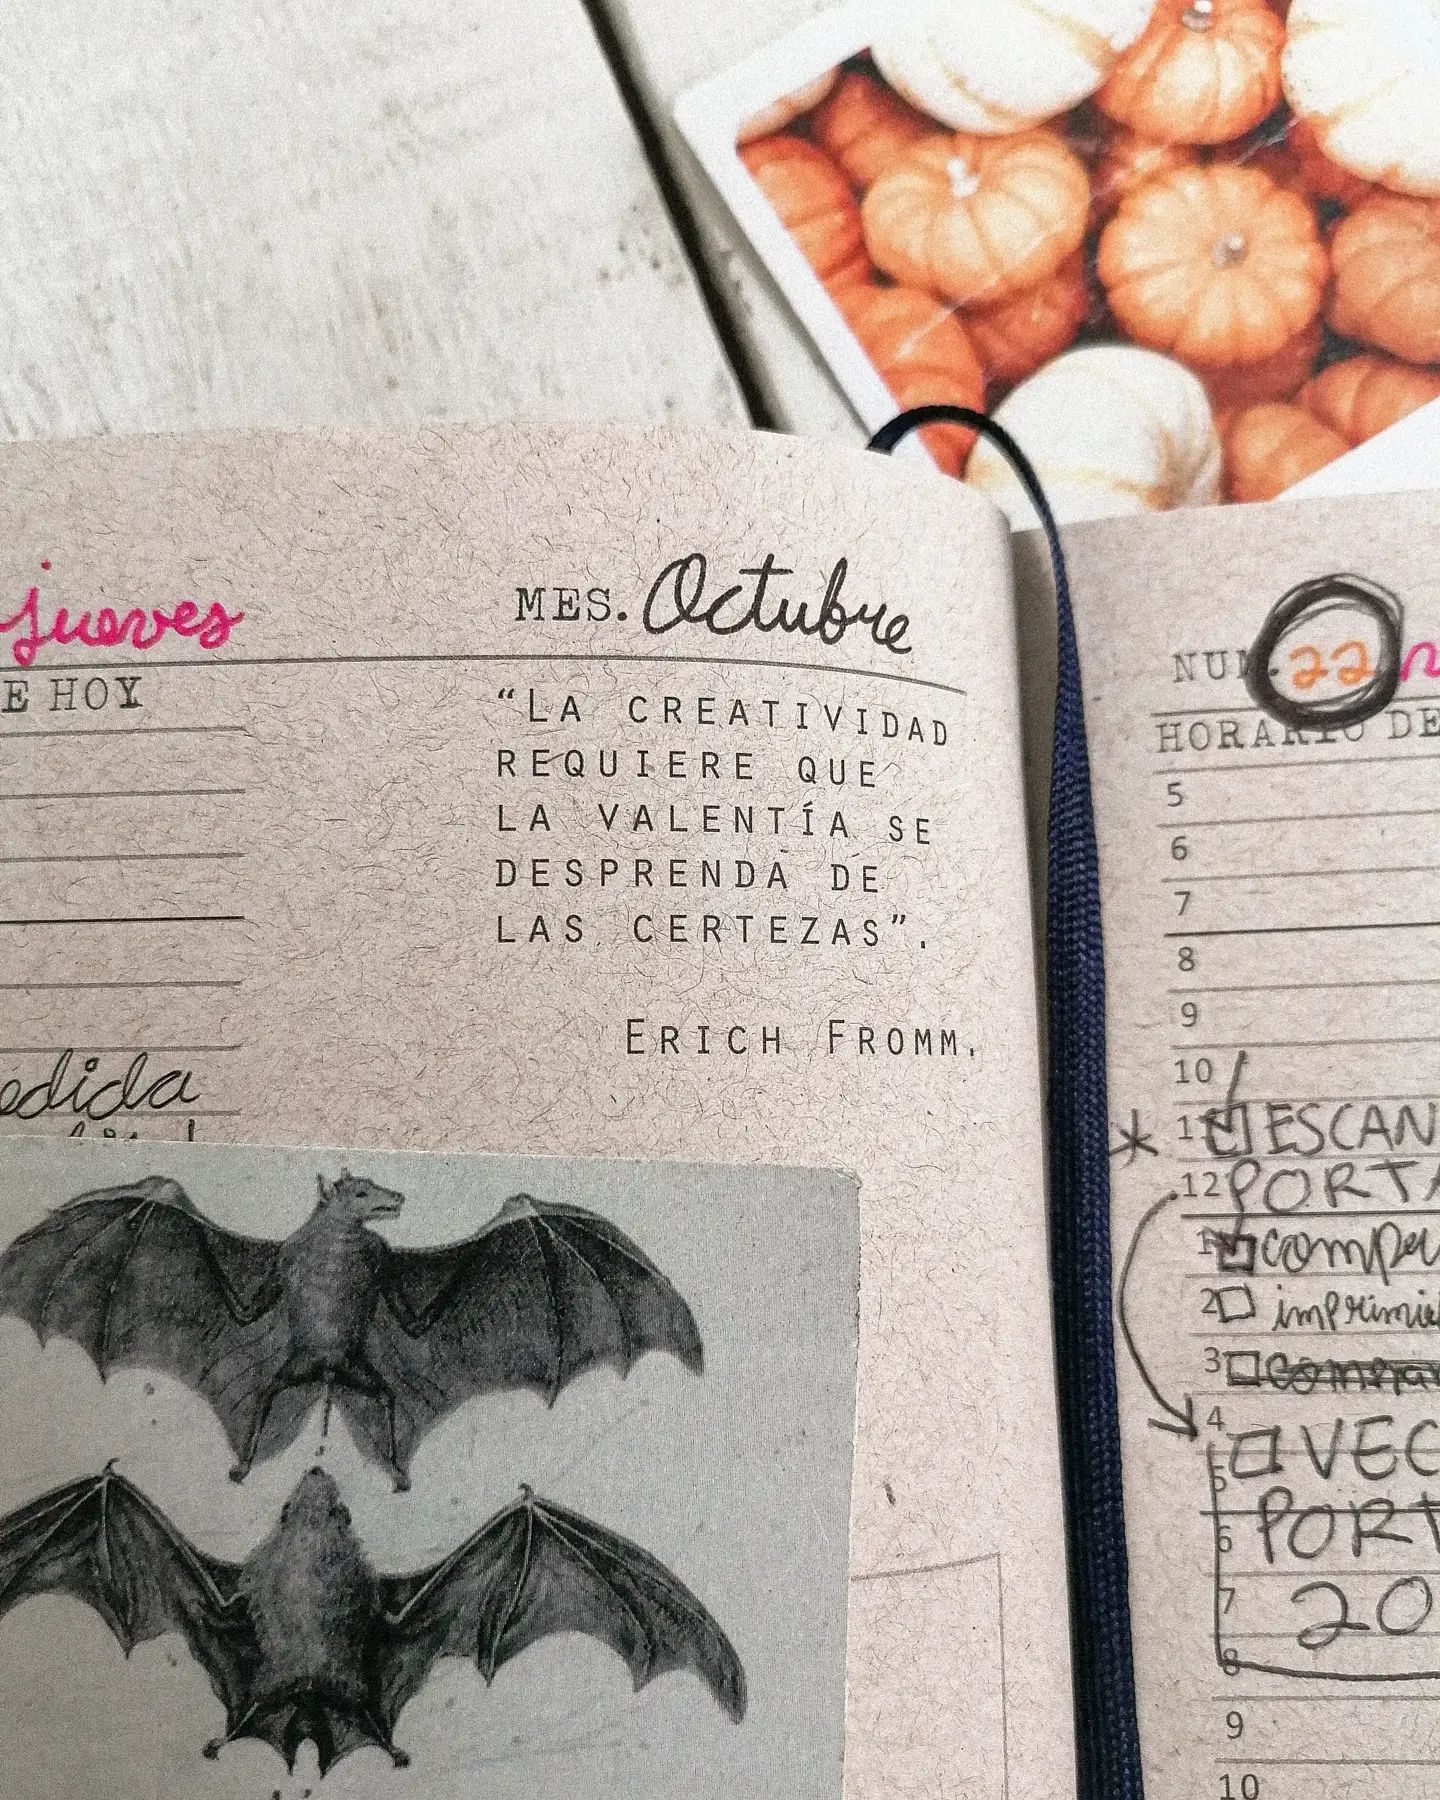 jueves
MES. Octubre
E HOY
"LA CREATIVIDAD
REQUIERE QUE
LA VALENTÍA SE
DESPRENDA DE
LAS CERTEZAS".
ERICH FROMM.
edida
NUM. 22
HORARIO DE
5
6
7
8
9
10
11 ESCAN
12 PORTA
1
2 imprimi
3
4
VEC
5
6 PORT
7 20
8
9
10